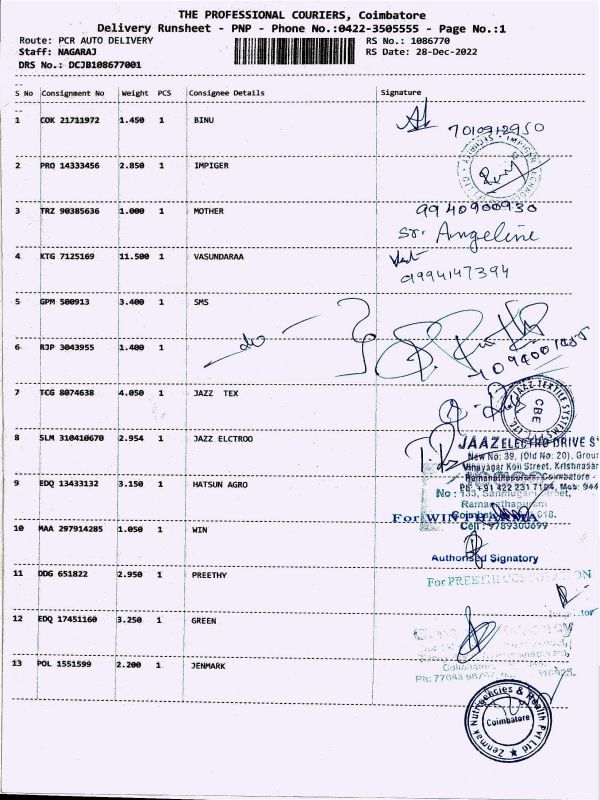 THE PROFESSIONAL COURIERS, Coimbatore
Delivery Runsheet - PNP - Phone No.:0422-3505555 - Page No.:1
Route: PCR AUTO DELIVERY RS No.: 1086770
Staff: NAGARAJ RS Date: 28-Dec-2022
DRS No.: DCJB108677001
S No Consignment No Weight PCS Consignee Details Signature
1 COK 21711972 1.450 1 BINU
7010912950
2 PRO 14333456 2.850 1 IMPIGER
3 TRZ 90385636 1.000 1 MOTHER 9940900930
Sr. Angeline
4 KTG 7125169 11.500 1 VASUNDARAA
9994147394
5 GPM 500913 3.400 1 SMS
6 RJP 3043955 1.400 1 do
7 TCG 8074638 4.050 1 JAZZ TEX
JAZZ TEXTILE SYSTEMS
CBE
8 SLM 310410670 2.954 1 JAZZ ELCTROO
JAAZ ELECTRO DRIVE S
New No: 39, (Old No: 20), Groun
Vinayagar Koil Street, Krishnasar
Ramanathapuram, Coimbatore -
Ph: +91 422 231 7104, Mob: 944
9 EDQ 13433132 3.150 1 HATSUN AGRO
No : 133,
Cell : 9789300699
For WIN PHARMA
10 MAA 297914285 1.050 1 WIN
Authorised Signatory
11 DDG 651822 2.950 1 PREETHY
For PREETHI CORPORATION
12 EDQ 17451160 3.250 1 GREEN
13 POL 1551599 2.200 1 JENMARK
Zenmak Nutragencies & Health Pvt Ltd
Coimbatore